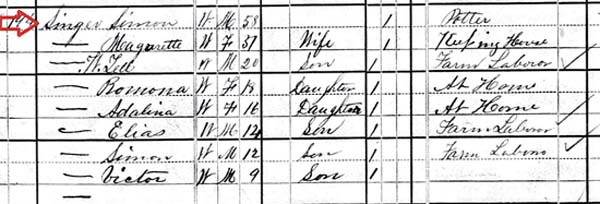 Singer Simon W M 58 1 Potter
— Margarette W F 37 Wife 1 Keeping House
— W. Tell W M 20 Son 1 Farm Laborer
— Romona W F 18 Daughter 1 At Home
— Adalina W F 16 Daughter 1 At Home
— Elias W M 14 Son 1 Farm Laborer
— Simon W M 12 Son 1 Farm Laborer
— Victor W M 9 Son 1
—